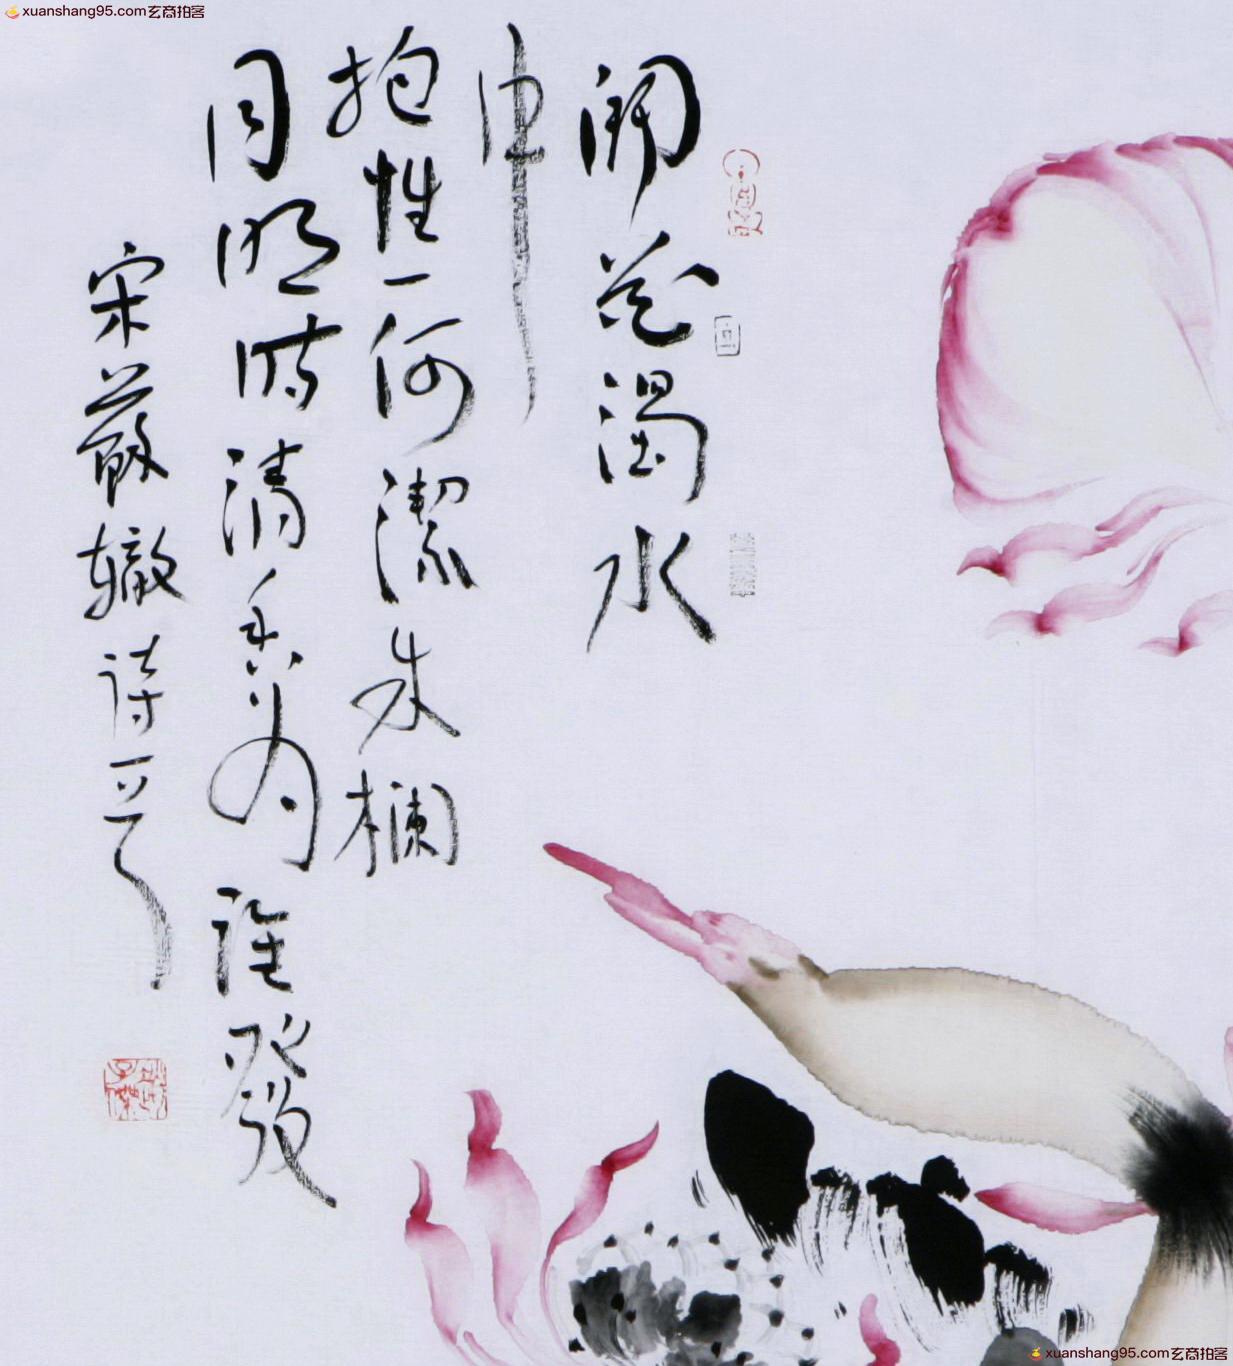 xuanshang95.com玄商拍客
開花濁水
中
抱性一何潔朱欄
月明時清香為誰發
宋蘇轍詩一首
xuanshang95.com玄商拍客